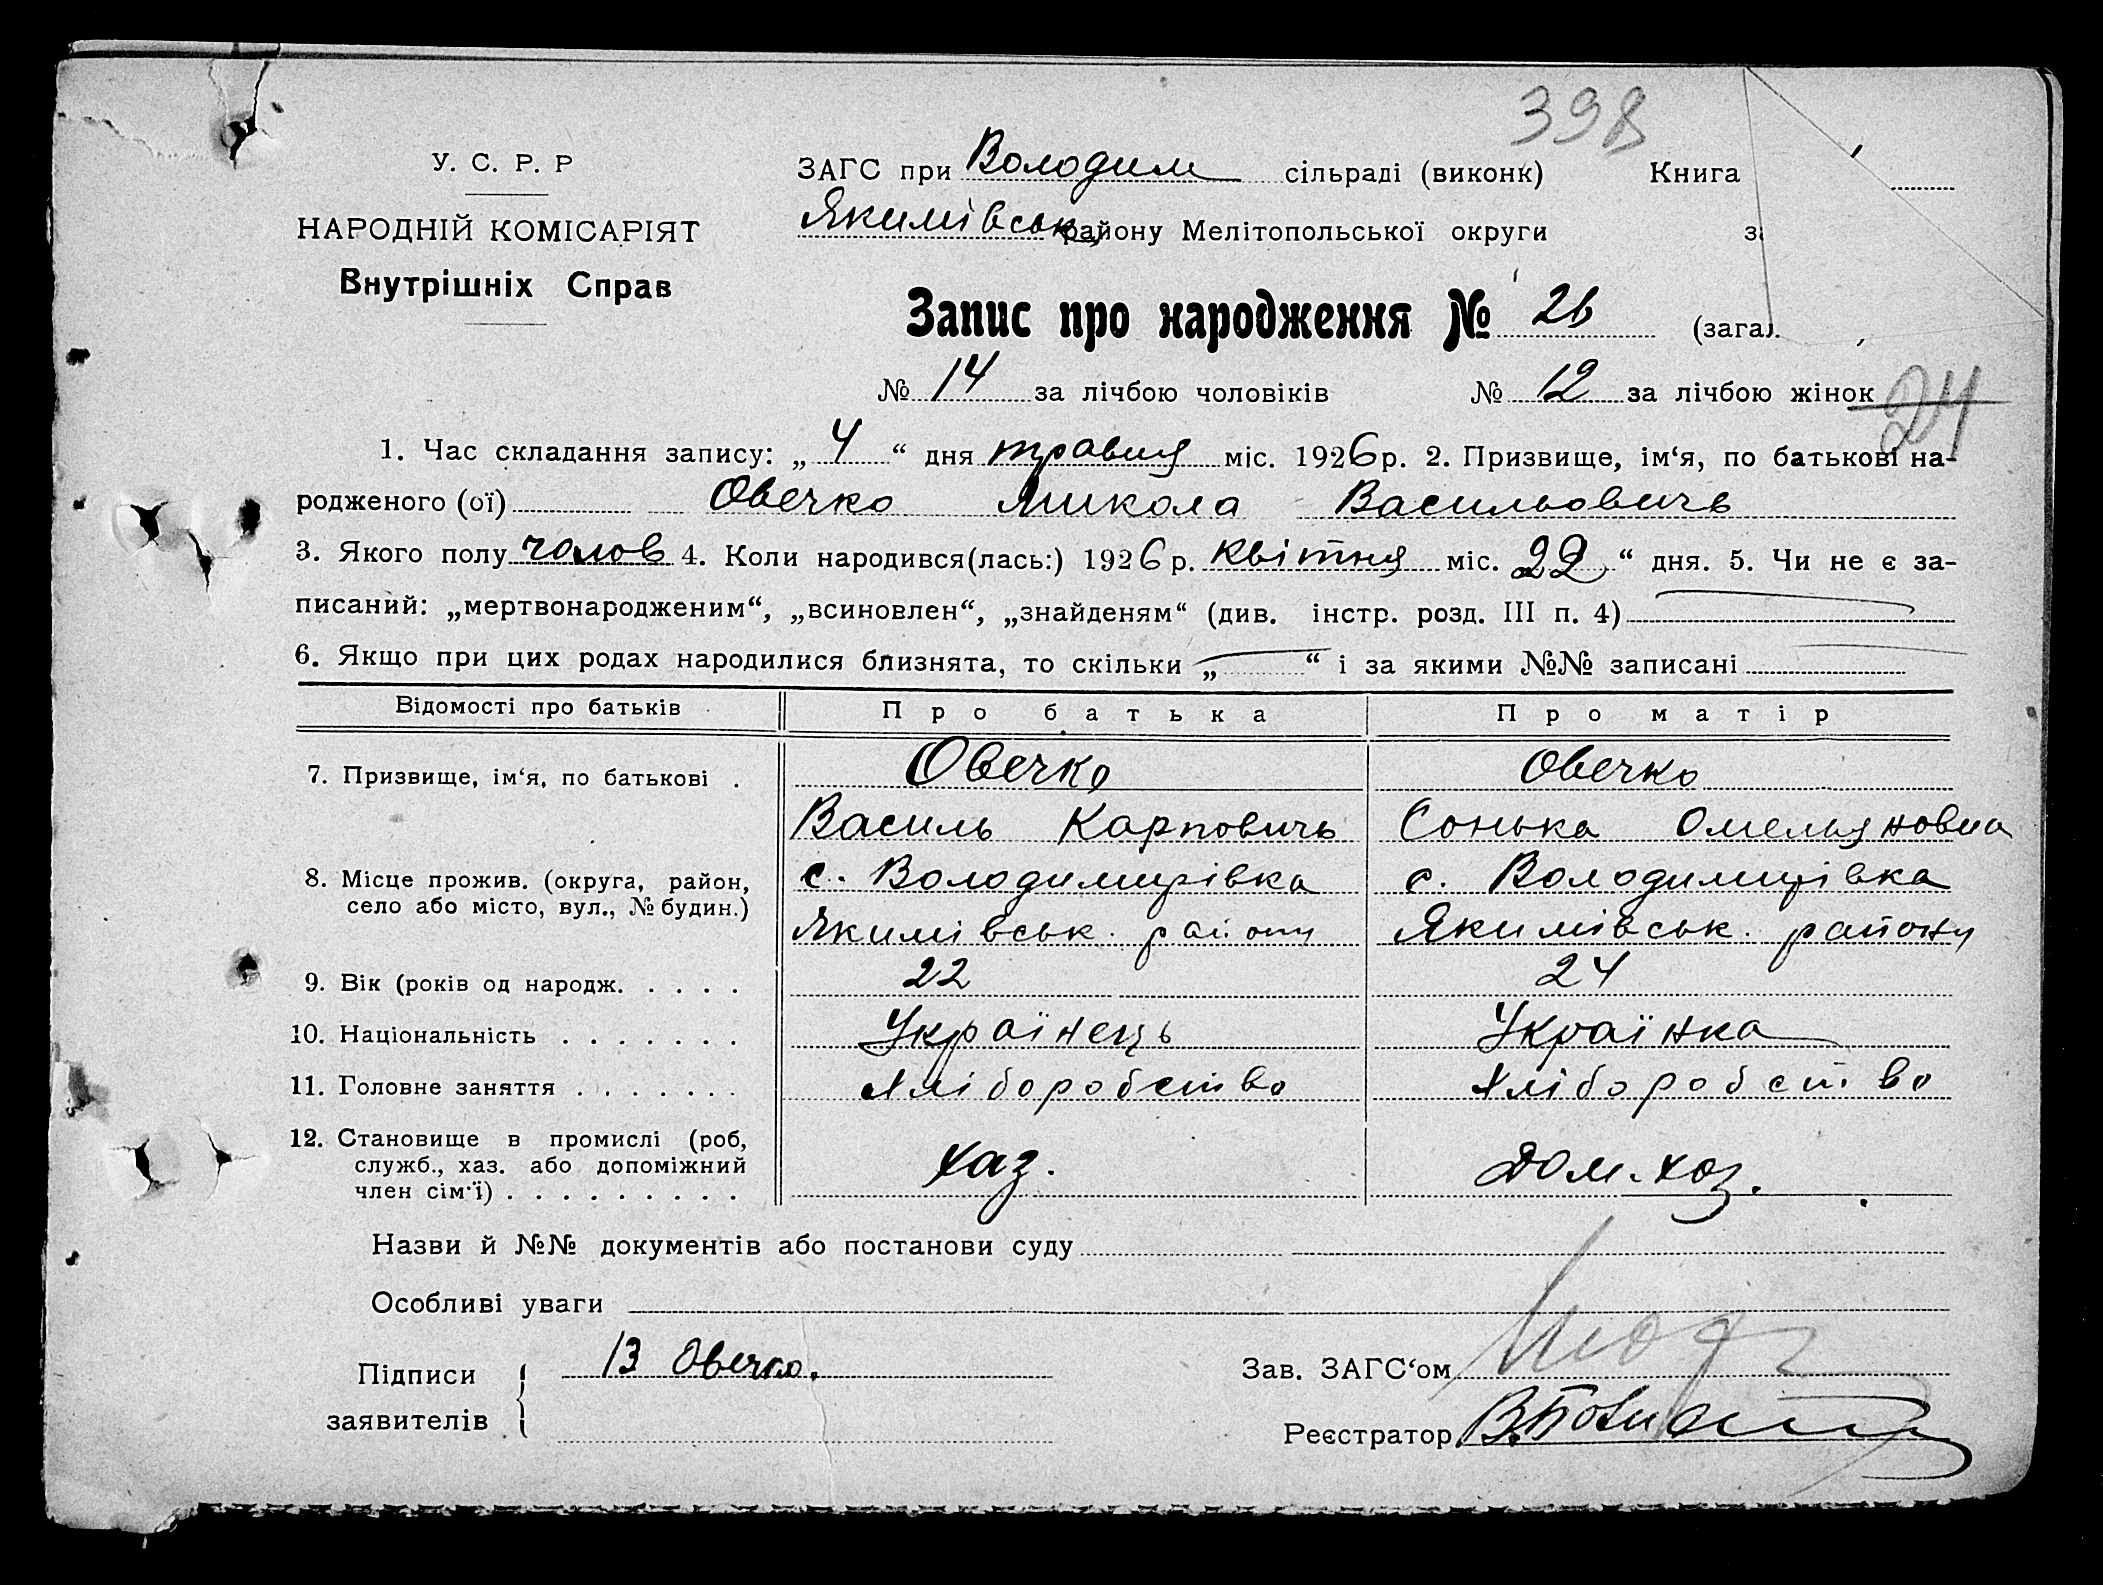 398
У. С. Р. Р
ЗАГС при Володим сільраді (виконк) Книга
НАРОДНІЙ КОМІСАРІЯТ
Якимівськ району Мелітопольської округи за
Внутрішніх Справ
Запис про народження № 26 (загал.
№ 14 за лічбою чоловіків № 12 за лічбою жінок 24
1. Час складання запису: „ 4 “ дня травня міс. 1926 р. 2. Призвище, ім‘я, по батькові на-
родженого (ої) Овечко Микола Васильовичь
3. Якого полу чолов 4. Коли народився(лась:) 1926 р. квітня міс. 22 “ дня. 5. Чи не є за-
писаний: „мертвонародженим“, „всиновлен“, „знайденям“ (див. інстр. розд. III п. 4)
6. Якщо при цих родах народилися близнята, то скільки „ “ і за якими №№ записані
Відомості про батьків Про батька Про матір
7. Призвище, ім‘я, по батькові . Овечко Овечко
Василь Карповичь Сонька Омеляновна
8. Місце прожив. (округа, район, с. Володимирівка с. Володимирівка
село або місто, вул., № будин.)
Якимівськ. району Якимівськ. району
9. Вік (років од народж. . . . . 22 24
10. Національність . . . . . . . Українець Українка
11. Головне заняття . . . . . . . Хліборобство Хліборобство
12. Становище в промислі (роб,
служб., хаз. або допоміжний хаз. Дом. хоз.
член сім‘ї) . . . . . . . . .
Назви й №№ документів або постанови суду
Особливі уваги
Підписи В Овечко. Зав. ЗАГС‘ом
заявителів Реєстратор